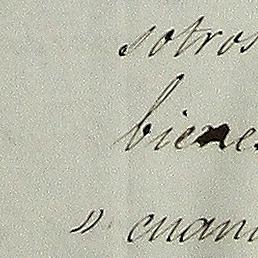 sotros
bienes
» cuand